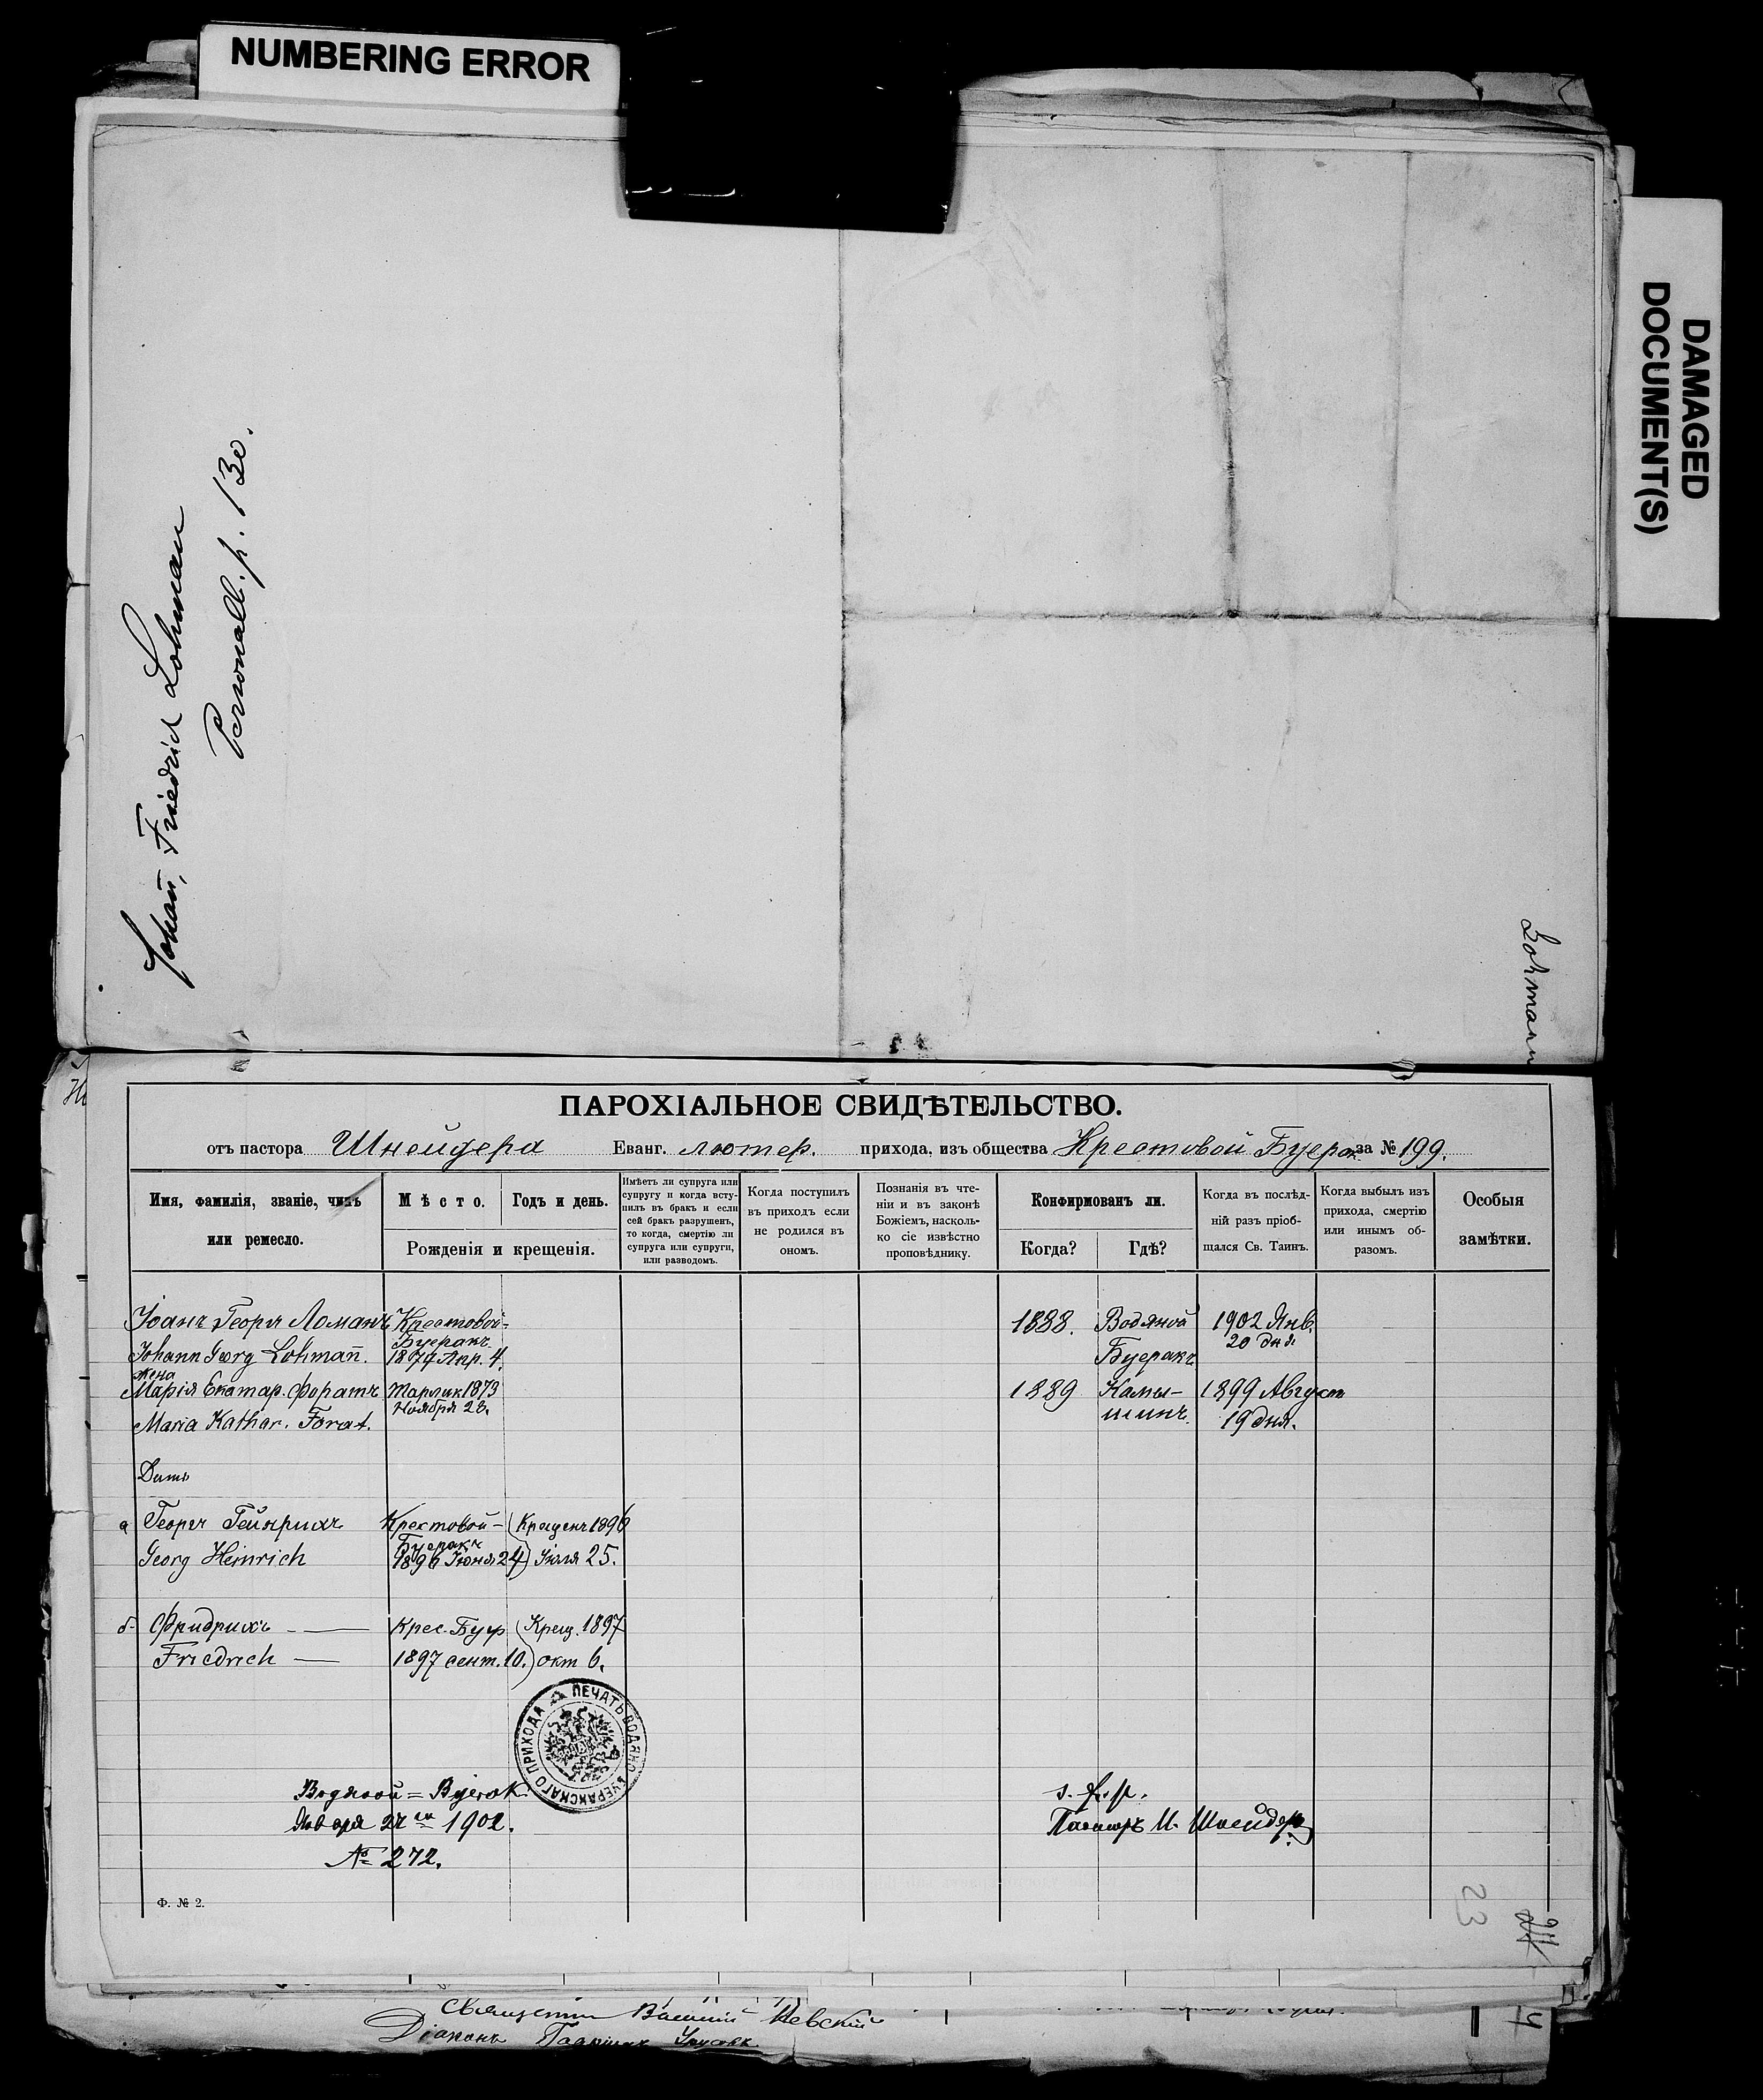 NUMBERING ERROR
DAMAGED
DOCUMENT(S)
Johañ, Friedrich Lohman
Personall. p. 130.
Lohmann
ПАРОХІАЛЬНОЕ СВИДѢТЕЛЬСТВО.
отъ пастора Шнейдера Еванг. лютер. прихода, изъ общества Крестовой Буерак за № 199.
Имя, фамилія, званіе, чинъ
или ремесло.
Мѣсто.
Годъ и день.
Рожденія и крещенія.
Имѣетъ ли супруга или
супругу и когда всту-
пилъ въ бракъ и если
сей бракъ разрушенъ,
то когда, смертію ли
супруга или супруги,
или разводомъ.
Когда поступилъ
въ приходъ если
не родился въ
ономъ.
Познанія въ чте-
ніи и въ законѣ
Божіемъ, насколь-
ко сіе извѣстно
проповѣднику.
Конфирмованъ ли.
Когда?
Гдѣ?
Когда въ послѣд-
ній разъ пріоб-
щался Св. Таинъ.
Когда выбылъ изъ
прихода, смертію
или инымъ об-
разомъ.
Особыя
замѣтки.
Іоанъ Георгъ Ломанъ Крестовой- 1888. Водяной 1902 Янв.
Буеракъ 20 дня
Johann Georg Lohmañ. 1874 Апр. 4. Буеракъ
жена
Марія Екатар. Форатъ Тарлик 1873 1889 Камы- 1899 Август
Ноября 28. шинъ 19 дня.
Maria Kathar. Forat.
Дети
а Георгъ Гейнрихъ Крестовой- (Крещенъ 1896
Буеракъ
Georg Heinrich 1896 Іюня 24) Іюля 25.
б Фридрихъ — Крес. Буер (Крещ. 1897
Friedrich — 1897 сент. 10.) окт 6.
ПЕЧАТЬ ВОДЯНО БУЕРАКСКАГО ПРИХОДА
Водяной = Bujerak
Января 27 1902.
№ 272.
s. f. p.
Пасторъ И. Шнейдеръ
Ф. № 2.
23
24
Священникъ Невскій
Діаконъ